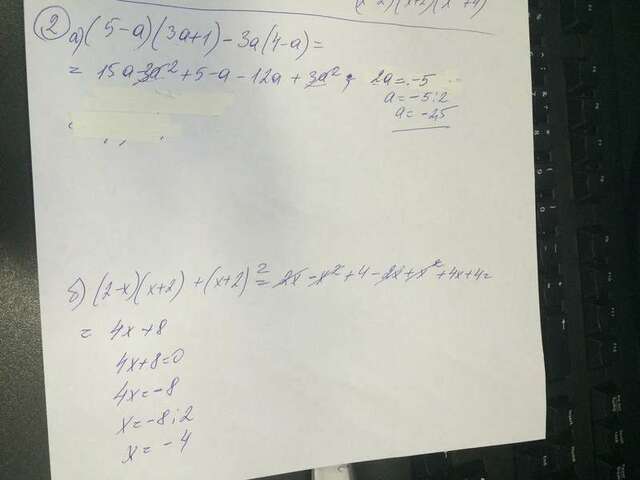 (x-2)(x+2)(x²+4)
2 а) (5-a)(3a+1)-3a(4-a)=
= 15a-3a²+5-a-12a+3a²; 2a=-5
a=-5:2
a=-2,5
б) (2-x)(x+2)+(x+2)²=2x-x²+4-2x+x²+4x+4=
= 4x+8
4x+8=0
4x=-8
x=-8:2
x=-4